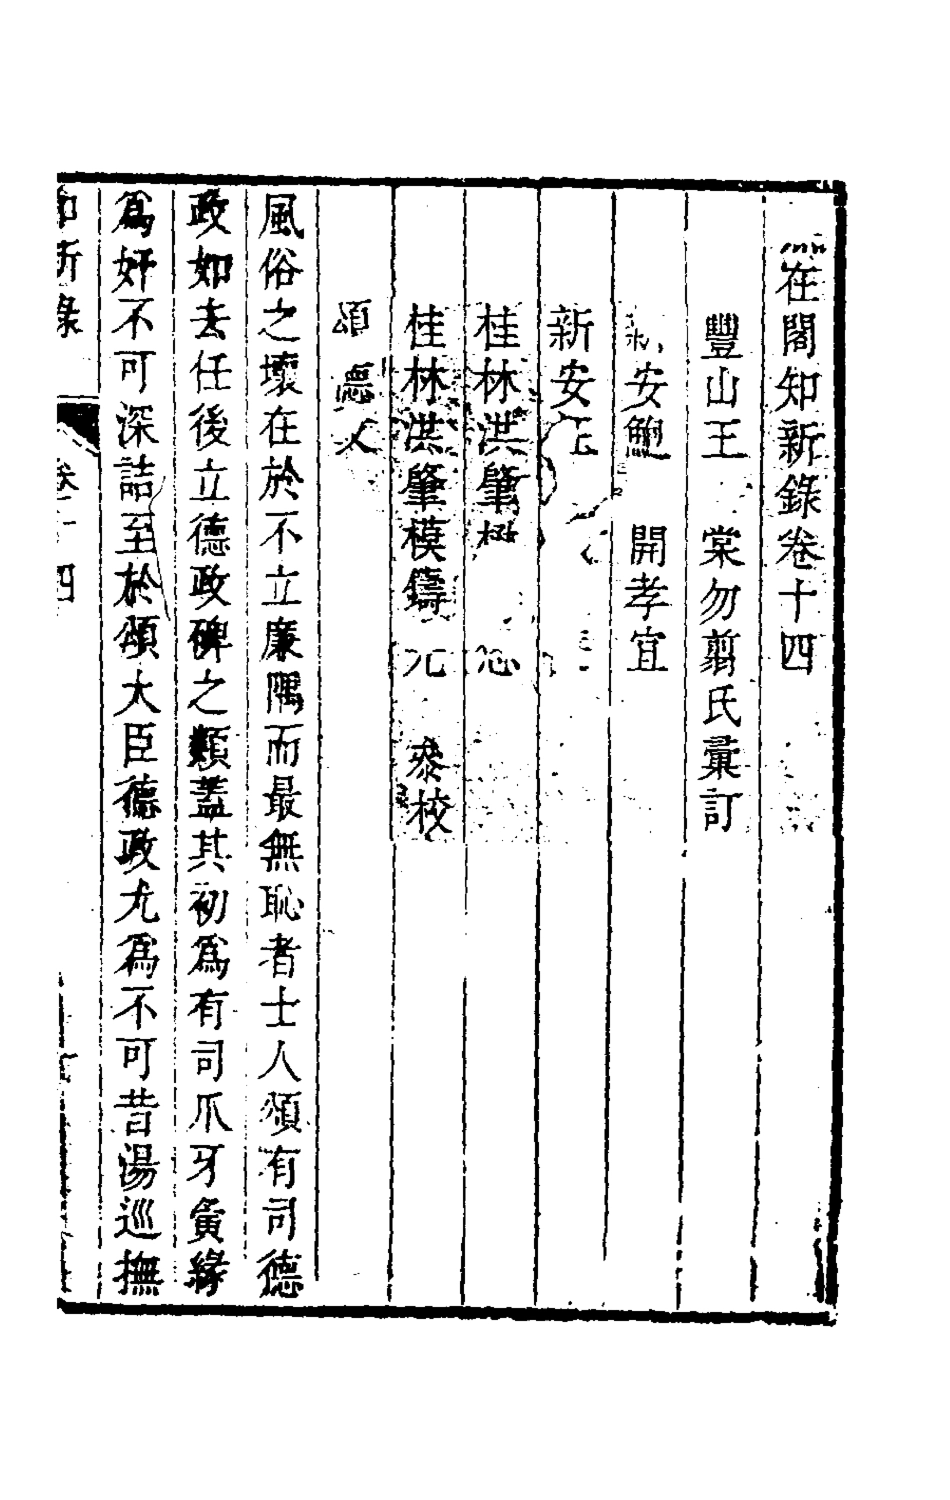 在閣知新錄卷十四
豐山王 棠勿翦氏彙訂
安鮑 開孝宜
新安
桂林洪肇
桂林洪肇模鑄 元 泰校
頌德
風俗之壞在於不立廉隅而最無恥者士人頌有司德
政如去任後立德政碑之類蓋其初為有司爪牙夤緣
為奸不可深詰至於頌大臣德政尤為不可昔湯巡撫
知新錄 卷十四